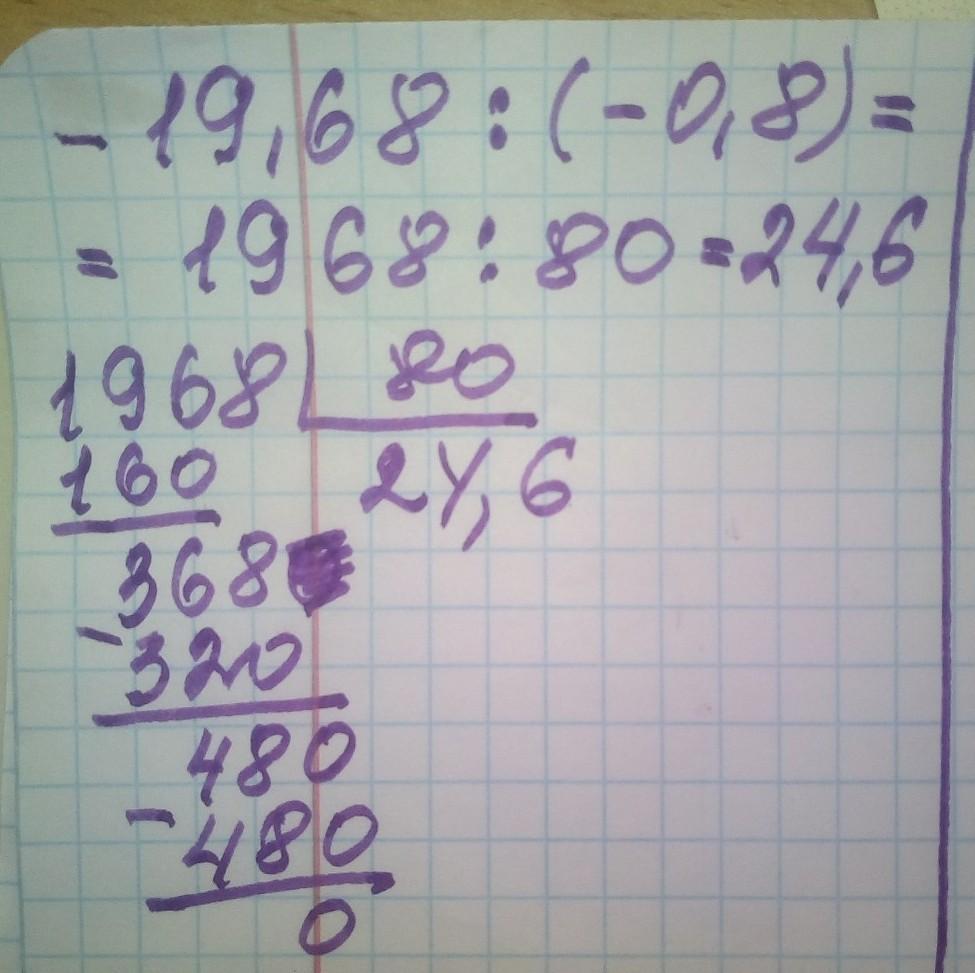 - 19,68 : (-0,8) =
= 1968 : 80 = 24,6
1968 | 80
160 24,6
368
- 320
480
- 480
0